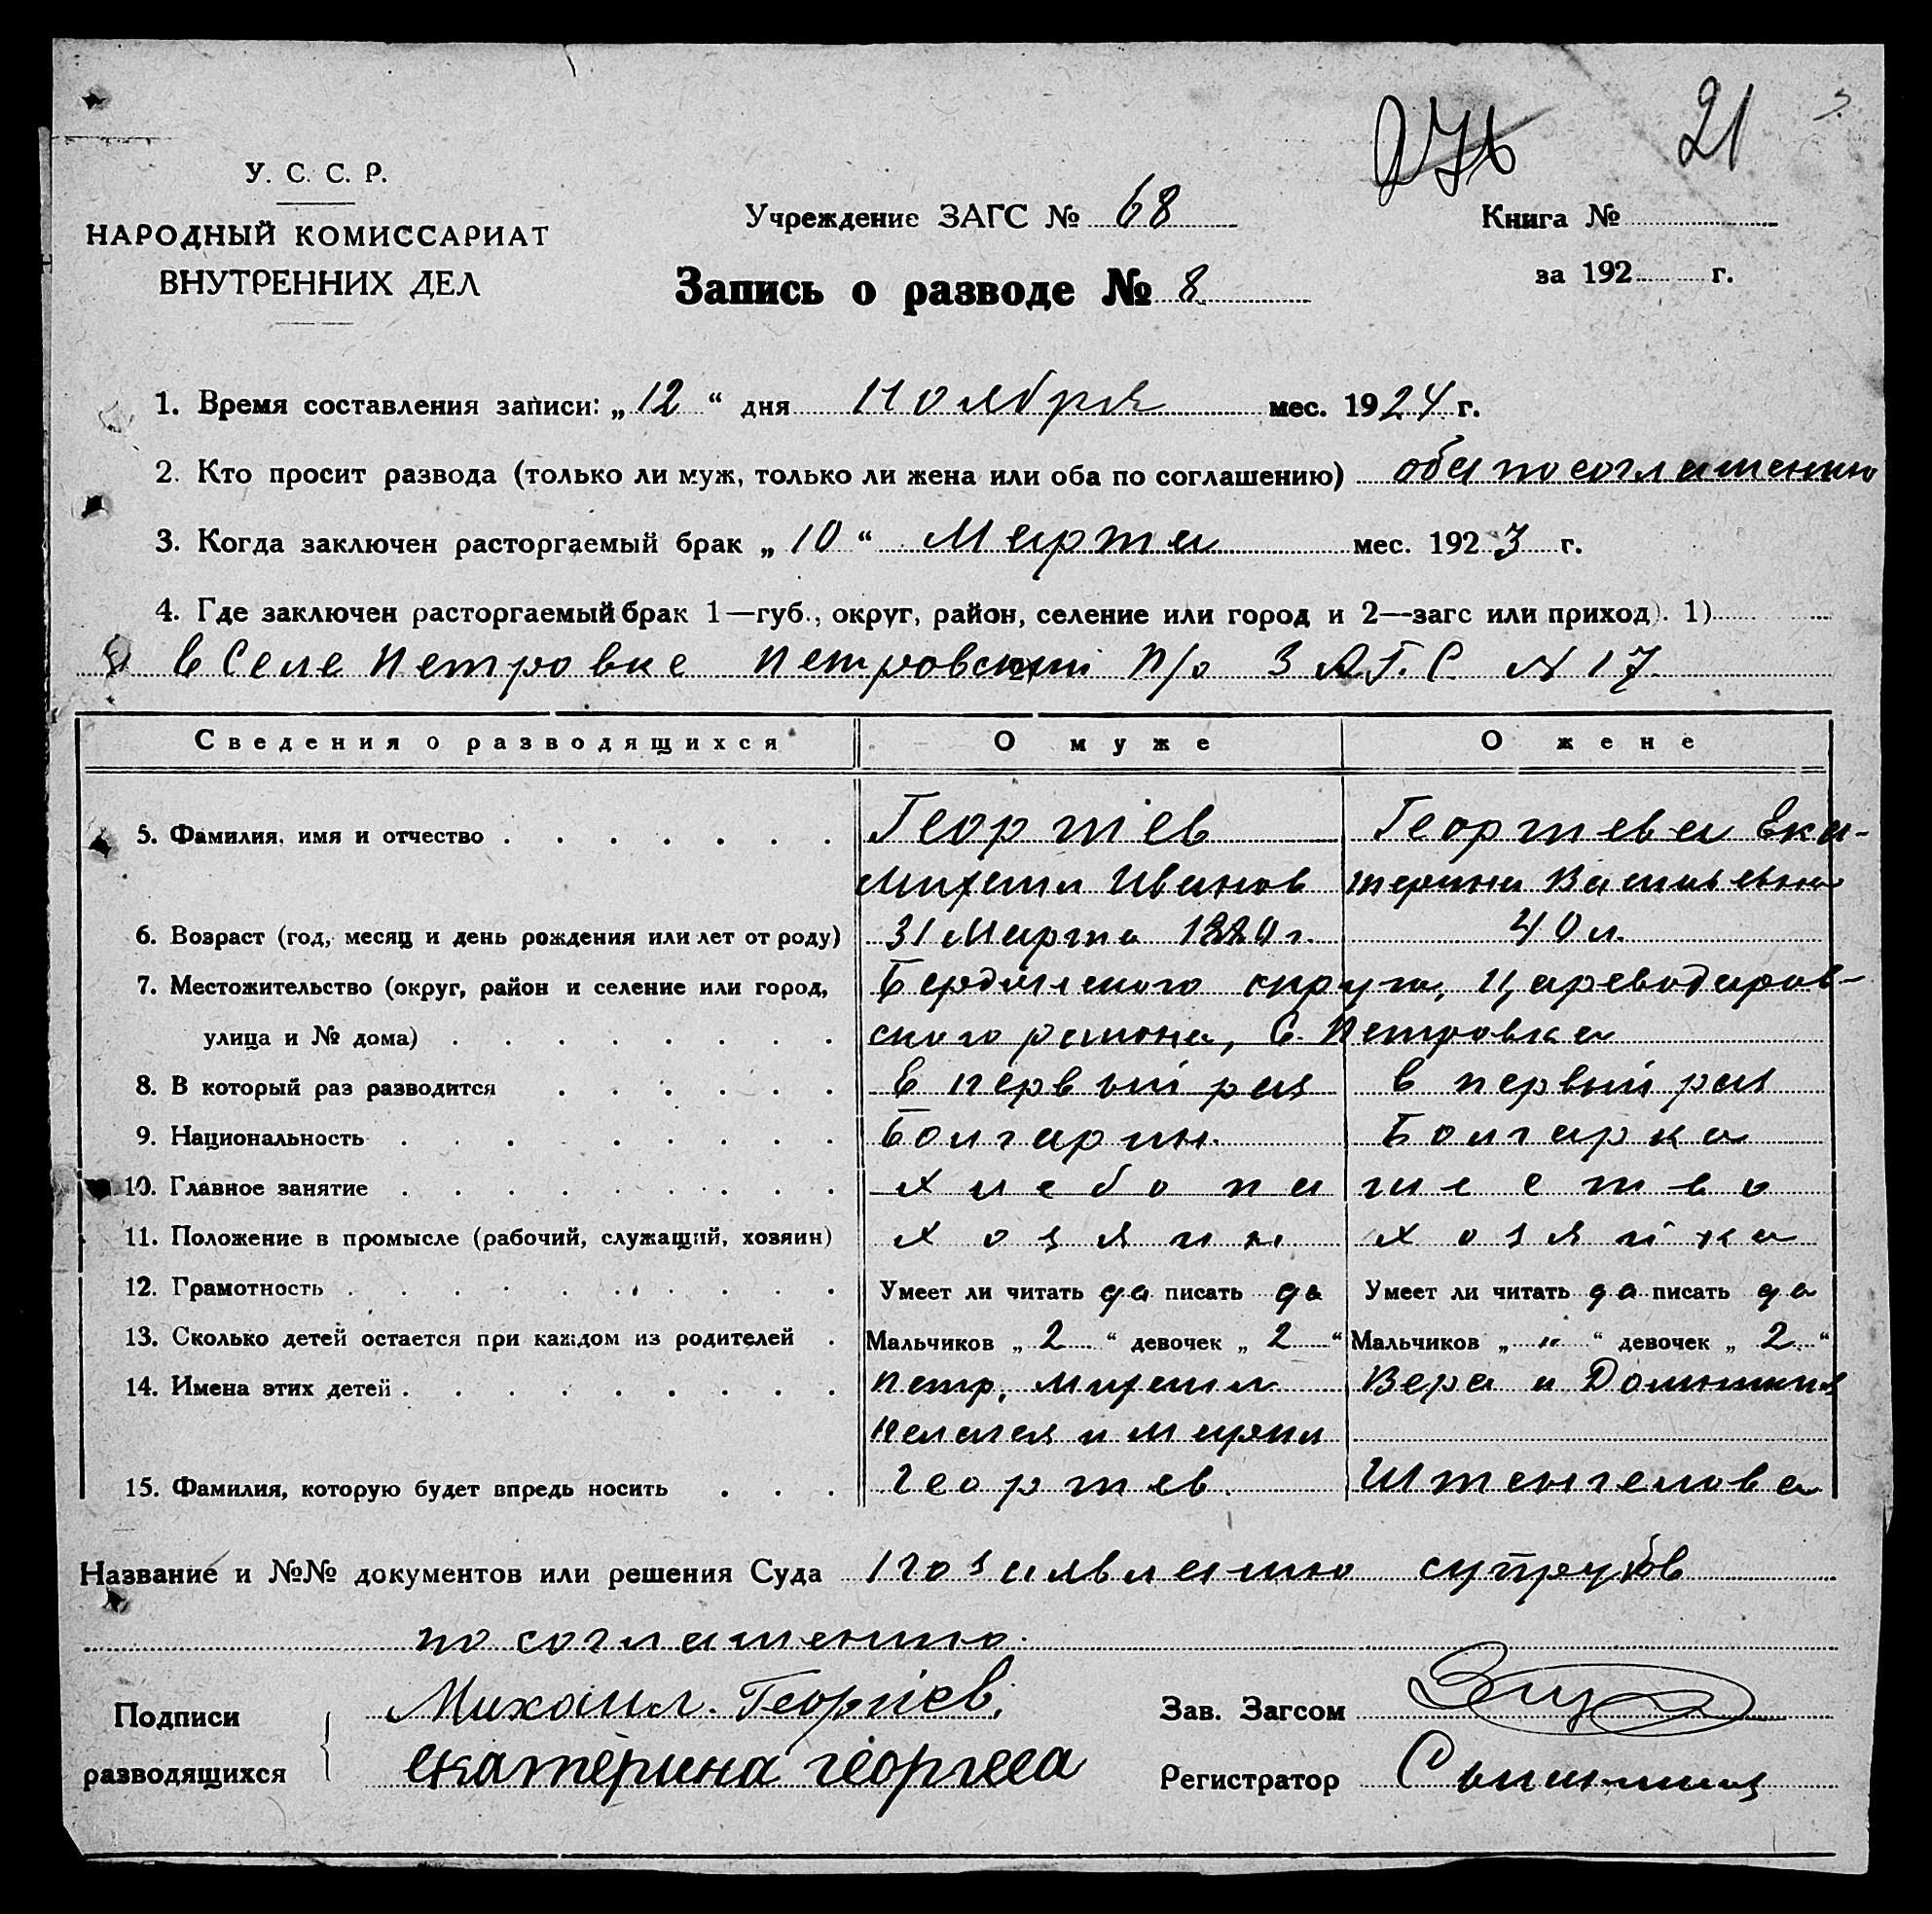 21
У. С. С. Р.
НАРОДНЫЙ КОМИССАРИАТ
ВНУТРЕННИХ ДЕЛ
Учреждение ЗАГС № 68
Книга №
за 192 г.
Запись о разводе № 8
1. Время составления записи: „ 12 “ дня ноября мес. 1924 г.
2. Кто просит развода (только ли муж, только ли жена или оба по соглашению) оба по соглашению
3. Когда заключен расторгаемый брак „ 10 “ Марта мес. 1923 г.
4. Где заключен расторгаемый брак 1—губ., округ, район, селение или город и 2—загс или приход). 1)
в Селе Петровке Петровский п/о ЗАГС № 17.
Сведения о разводящихся О муже О жене
5. Фамилия, имя и отчество Георгиев Георгиева Ека-
Михаил Иванов терина Васильевна
6. Возраст (год, месяц и день рождения или лет от роду) 31 Марта г. 40 л.
7. Местожительство (округ, район и селение или город, Бердянского округа, Цареводаров-
улица и № дома) ского района, С. Петровка
8. В который раз разводится в первый раз в первый раз
9. Национальность Болгарин. Болгарка
10. Главное занятие хлебопашество
11. Положение в промысле (рабочий, служащий, хозяин) хозяин хозяйка
12. Грамотность Умеет ли читать да писать да Умеет ли читать да писать да
13. Сколько детей остается при каждом из родителей Мальчиков „ 2 “ девочек „ 2 “ Мальчиков „ " “ девочек „ 2 “
14. Имена этих детей Петр, Михаил Вера и
Пелагея и Мария
15. Фамилия, которую будет впредь носить Георгиев. Штенгелова
Название и №№ документов или решения Суда по заявлению супругов
по соглашению.
Подписи
разводящихся
Михаил. Георгіев.
екатерина георгева
Зав. Загсом
Регистратор